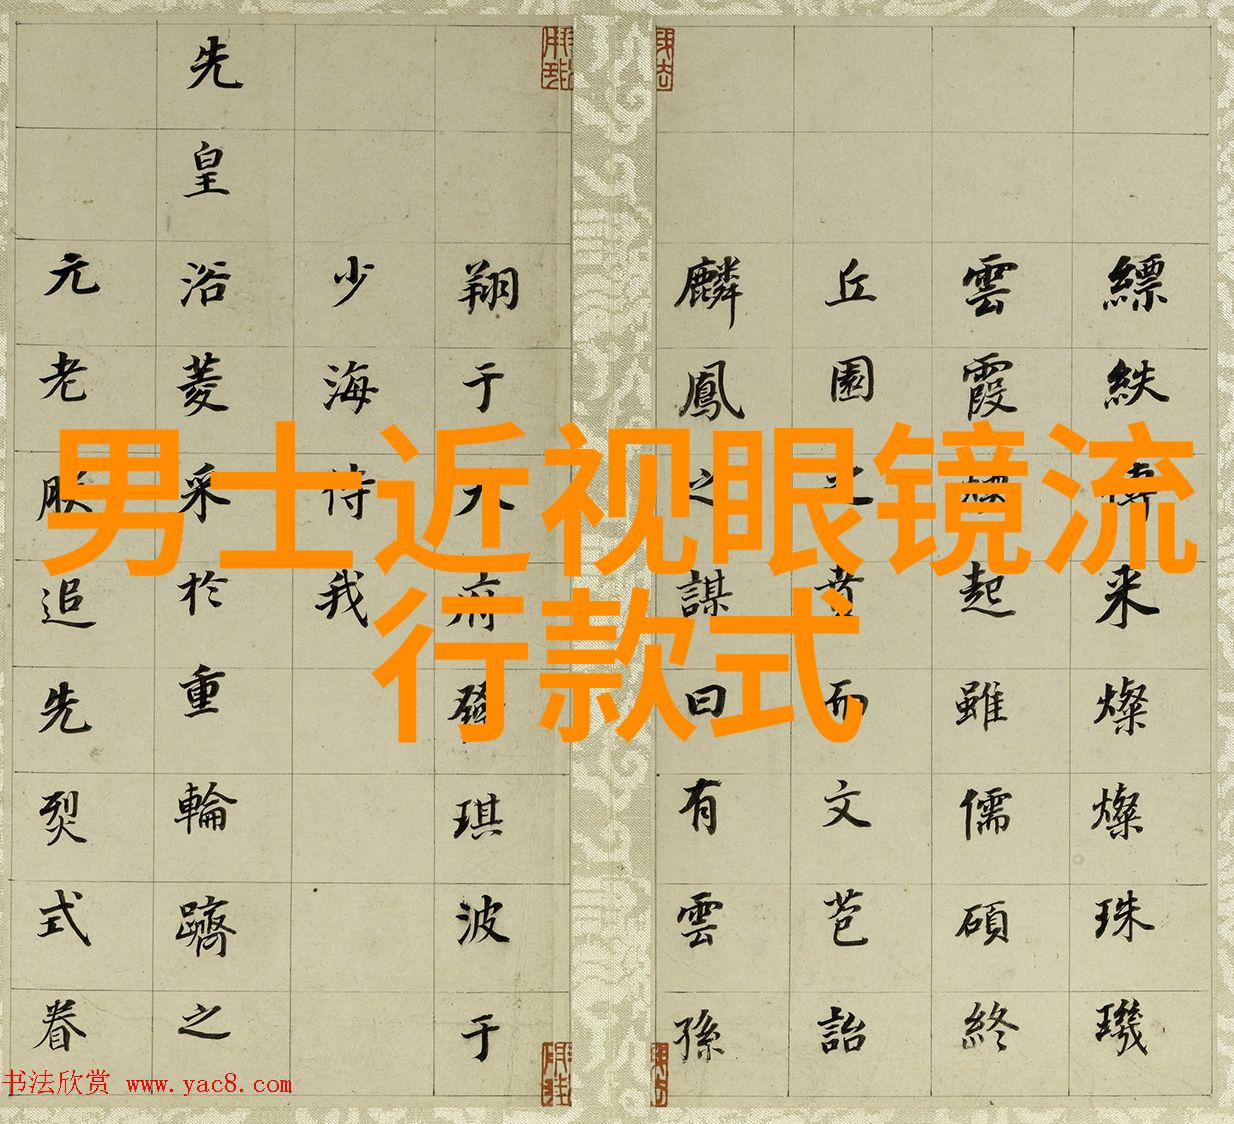 男士近视眼镜流
行款式
縹緗 采燦燦珠璣
雲霞 起雖儒碩終
丘園之賁而文芑詒
麟鳳之謀曰有雲孫
翔于 府發琪波于
少海侍我
先皇浴菱采於重輪躋之
元老朕追先烈式眷
书法欣赏 www.yac8.com